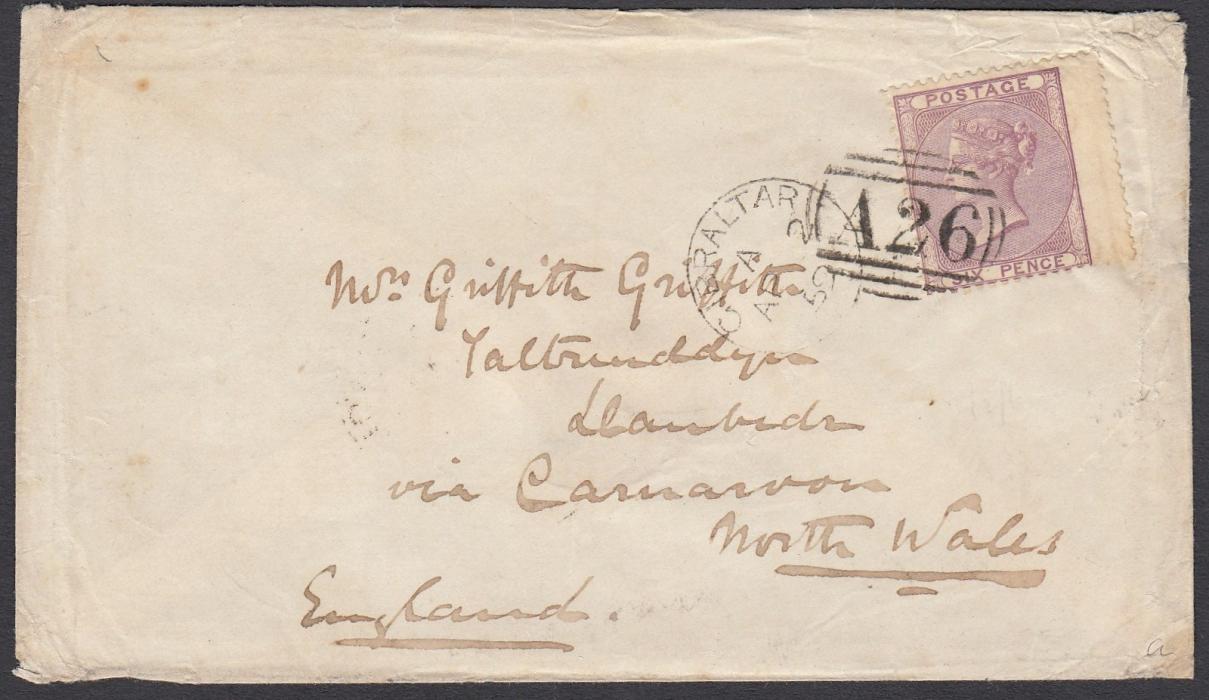 POSTAGE
SIX PENCE
GIBRALTAR
A
AP 2
59
A26
Mrs Griffith Griffith
Taltrunddyn
Llanbedr
via Carnarvon
North Wales
England.
a